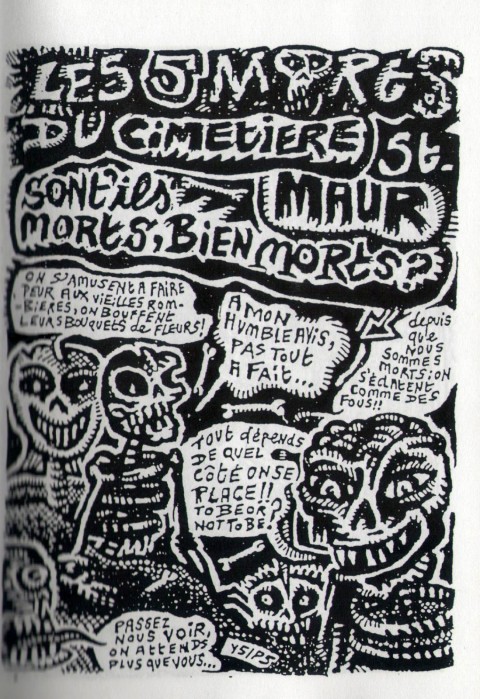 LES 5 MORTS
DU CIMETIERE St.
MAUR
SONT'ils
MORTS, BIEN MORTS?
ON S'AMUSENT A FAIRE
PEUR AUX VIEILLES ROM-
BIERES, ON BOUFFENT
LEURS BOUQUETS de FLEURS!
A MON
HUMBLE AVIS,
PAS TOUT
A FAIT...
depuis
que
NOUS
SOMMES
MORTS; ON
S'ÉCLATENT
COMME DES
FOUS!!
TOUT dépends
DE QUEL
CÔTÉ ON SE
PLACE!!
TO BE OR
NOT TO BE?
PASSEZ
NOUS VOIR,
ON ATTENDS
PLUS QUE VOUS...
Y5/P5